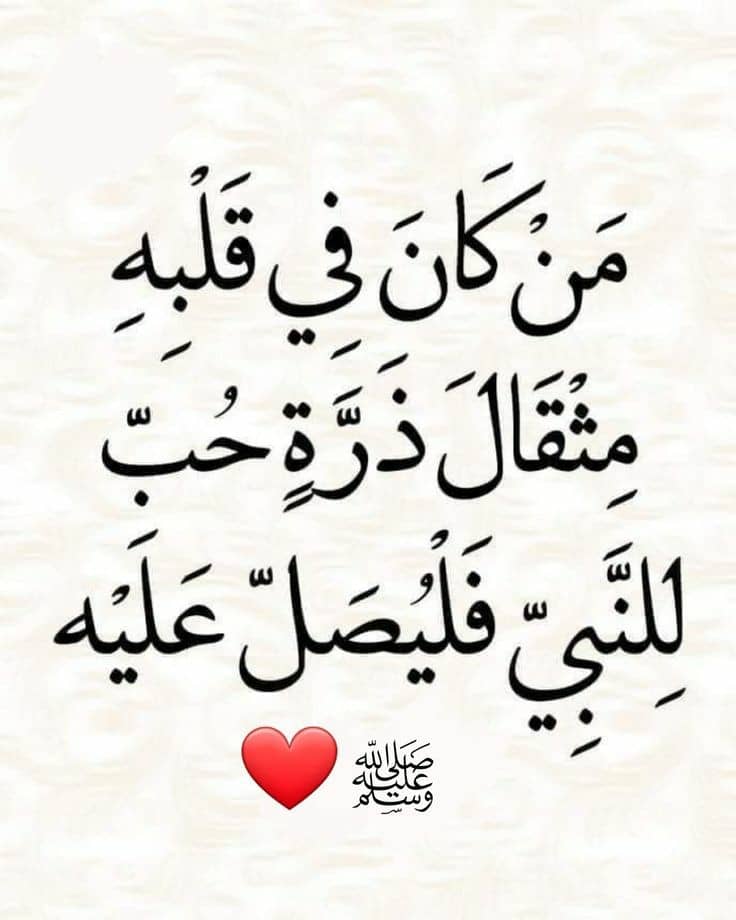 مَنْ كَانَ فِي قَلْبِهِ
مِثْقَالَ ذَرَّةٍ حُبّ
لِلنَّبِيّ فَلْيُصَلّ عَلَيْه
ﷺ ❤️